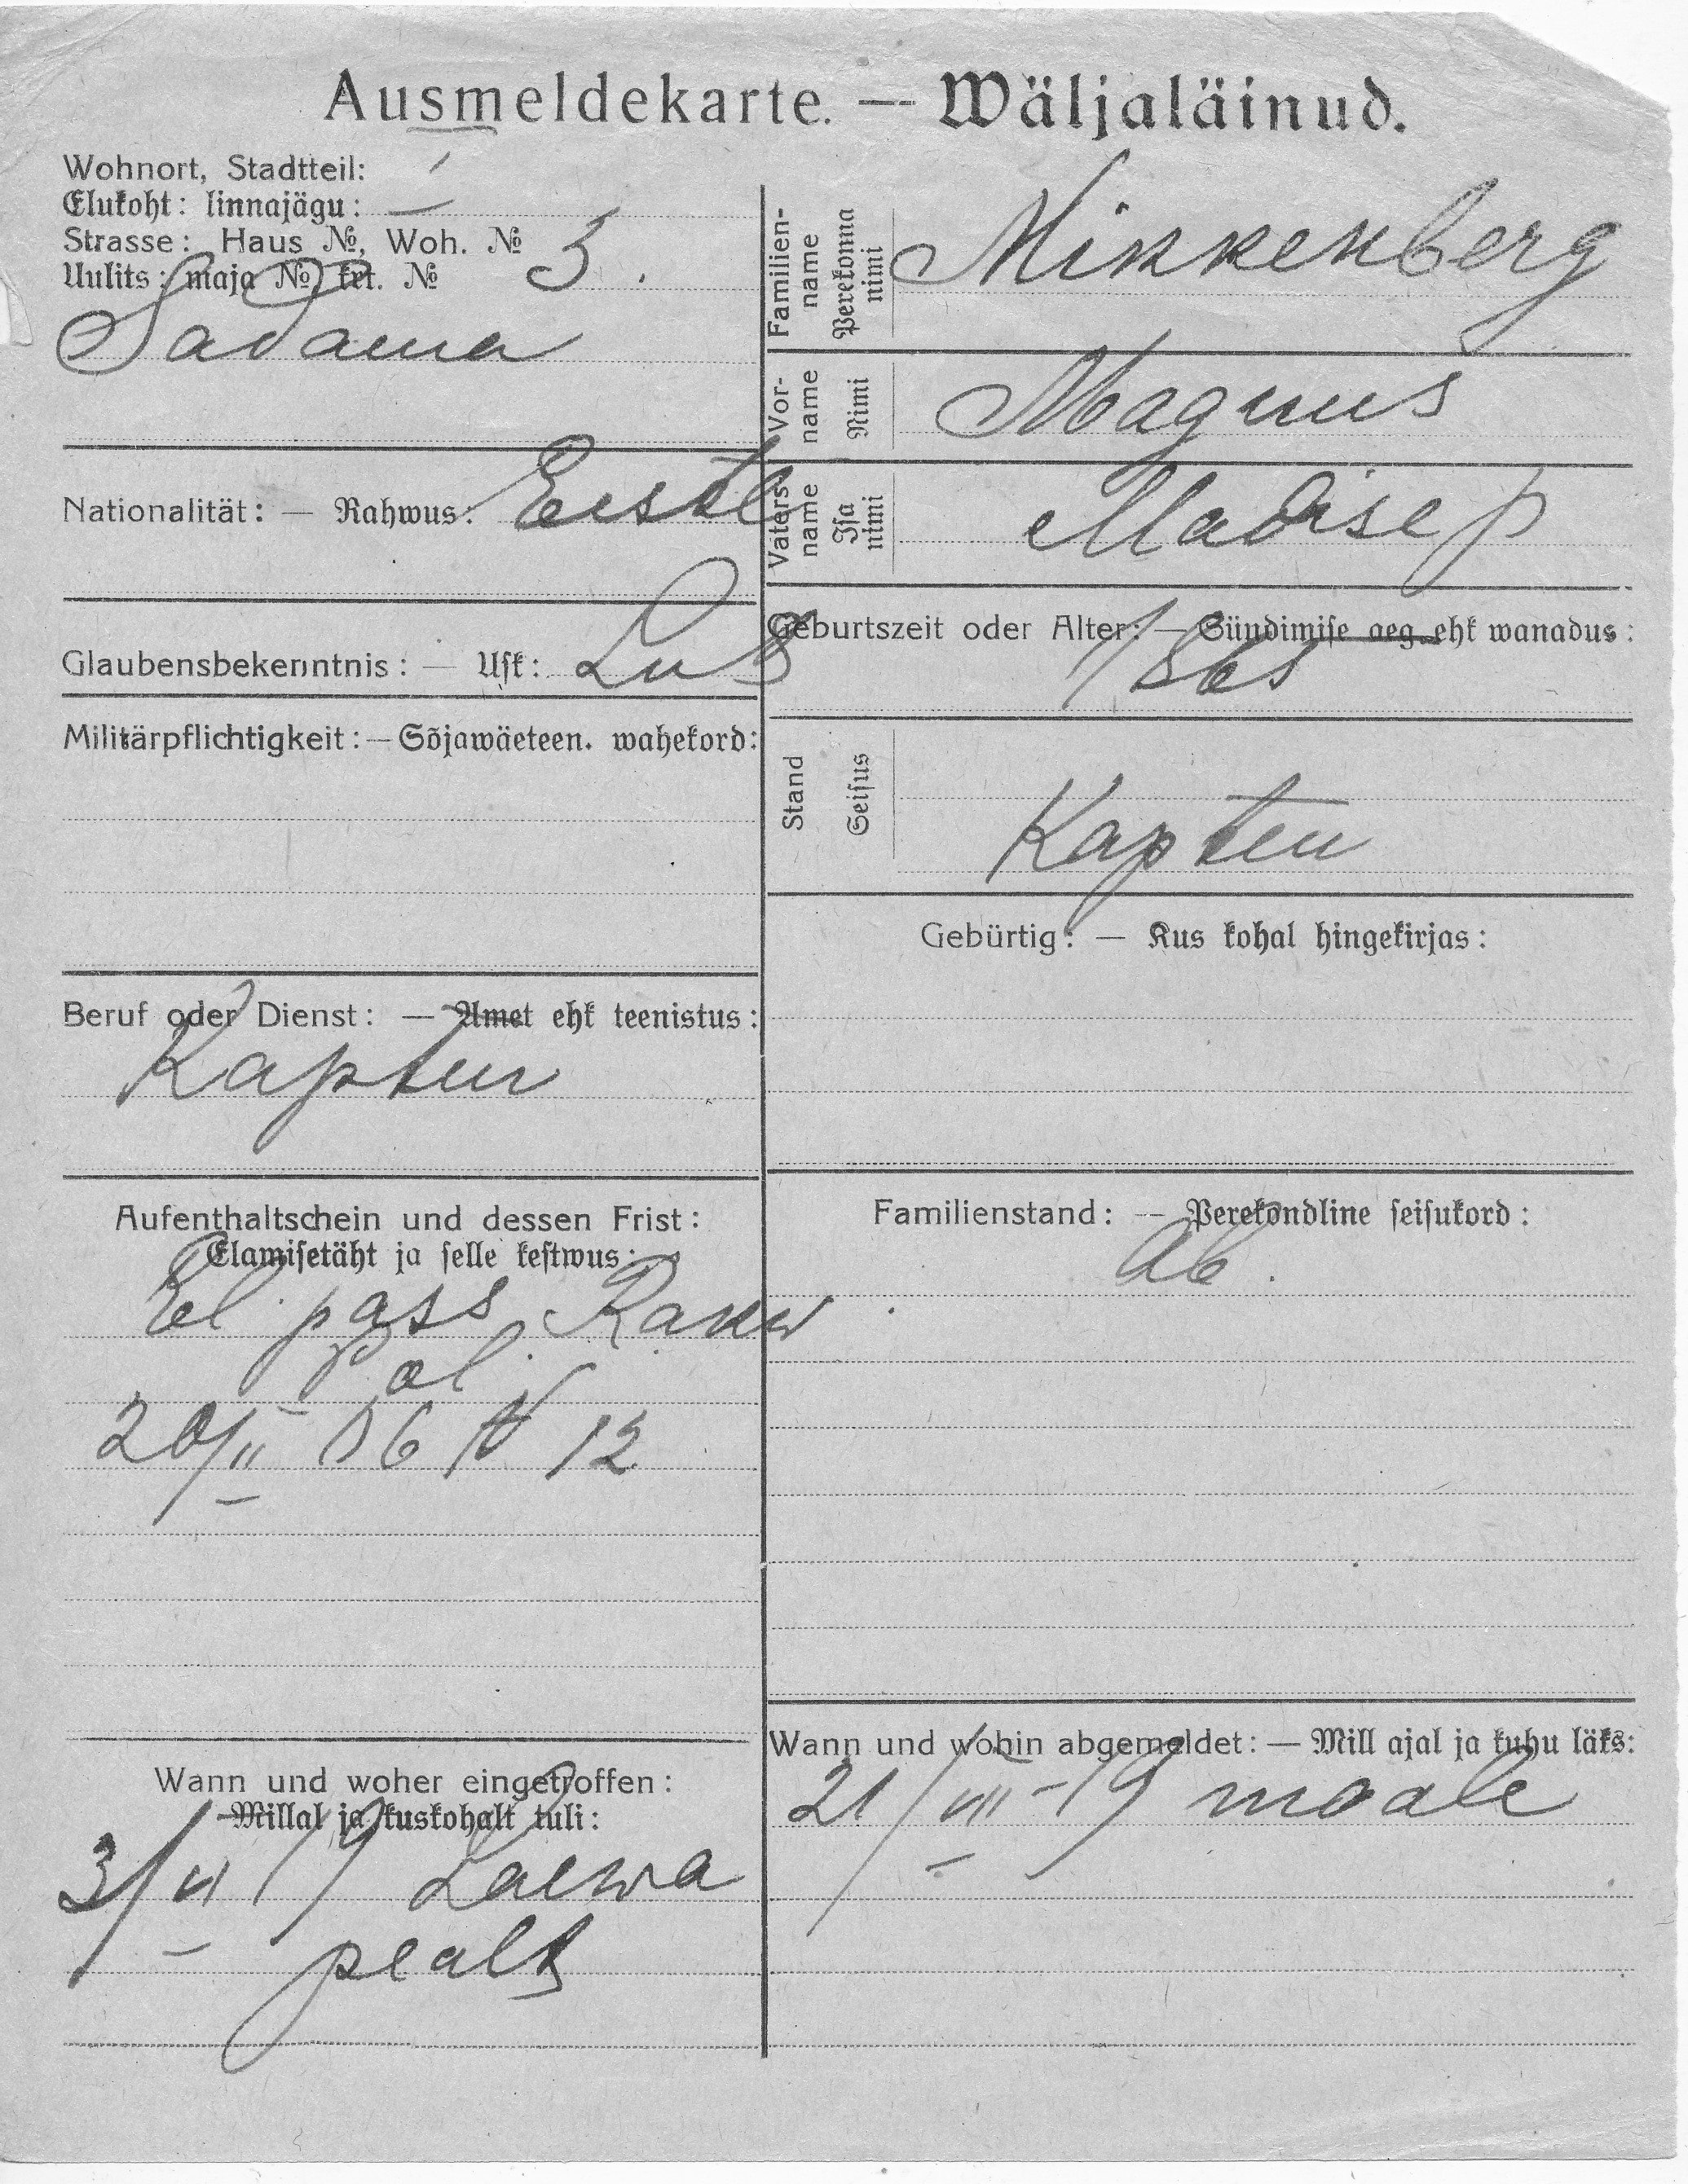 Ausmeldekarte. — Wäljaläinud.
Wohnort, Stadtteil: I
Elukoht: linnajägu:
Strasse: Haus №, Woh. № 3.
Uulits: maja № krt. №
Sadama
Nationalität: — Rahwus: Eestl
Glaubensbekenntnis: — Usk: Lut
Militärpflichtigkeit: — Sõjawäeteen. wahekord:
Beruf oder Dienst: — Amet ehk teenistus:
Kapten
Aufenthaltschein und dessen Frist:
Elamisetäht ja selle kestwus:
El. pass Rakw
Pol.
20/II 06 N 12
Wann und woher eingetroffen:
Millal ja kuskohalt tuli:
3/VI 19 Laewa
pealt
Familien-
name
Perekonna
nimi
Mikkenberg
Vor-
name
Nimi
Magnus
Vaters
name
Isa
nimi
Madise p
Geburtszeit oder Alter: — Sündimise aeg ehk wanadus:
1865
Stand
Seisus
Kapten
Gebürtig: — Kus kohal hingekirjas:
Familienstand: — Perekondline seisukord:
Ab.
Wann und wohin abgemeldet: — Mill ajal ja kuhu läks:
21/VIII-19 maale